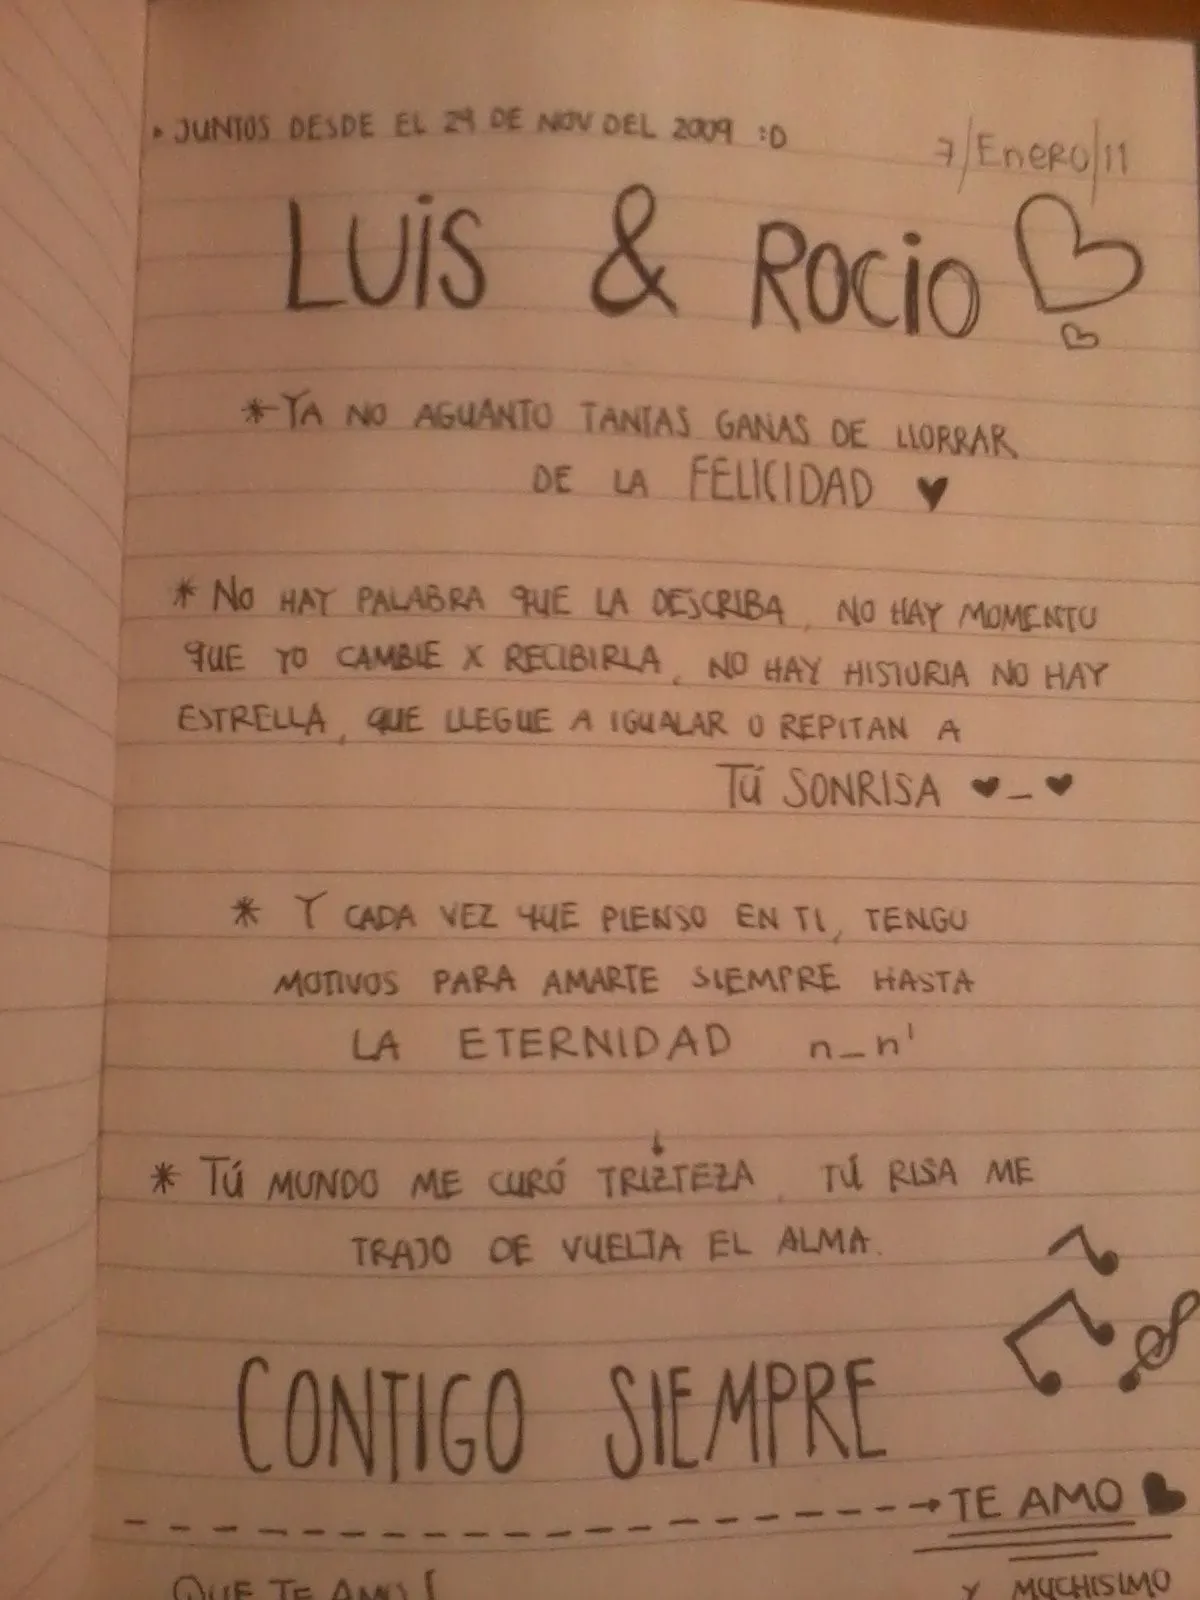 JUNTOS DESDE EL 29 DE NOV DEL 2009 :D
7/Enero/11
LUiS & ROCiO
*YA NO AGUANTO TANTAS GANAS DE LLORRAR
DE LA FELICIDAD ♥
* NO HAY PALABRA QUE LA DESCRIBA, NO HAY MOMENTO
QUE YO CAMBIE X RECIBIRLA, NO HAY HISTORIA NO HAY
ESTRELLA, QUE LLEGUE A IGUALAR O REPITAN A
TÚ SONRISA ♥_♥
* Y CADA VEZ QUE PIENSO EN TI, TENGO
MOTIVOS PARA AMARTE SIEMPRE HASTA
LA ETERNIDAD n_n'
* TÚ MUNDO ME CURÓ TRIZTEZA, TÚ RISA ME
TRAJO DE VUELTA EL ALMA.
CONTIGO SIEMPRE
TE AMO ♥
QUE TE AMO!
Y MUCHISIMO